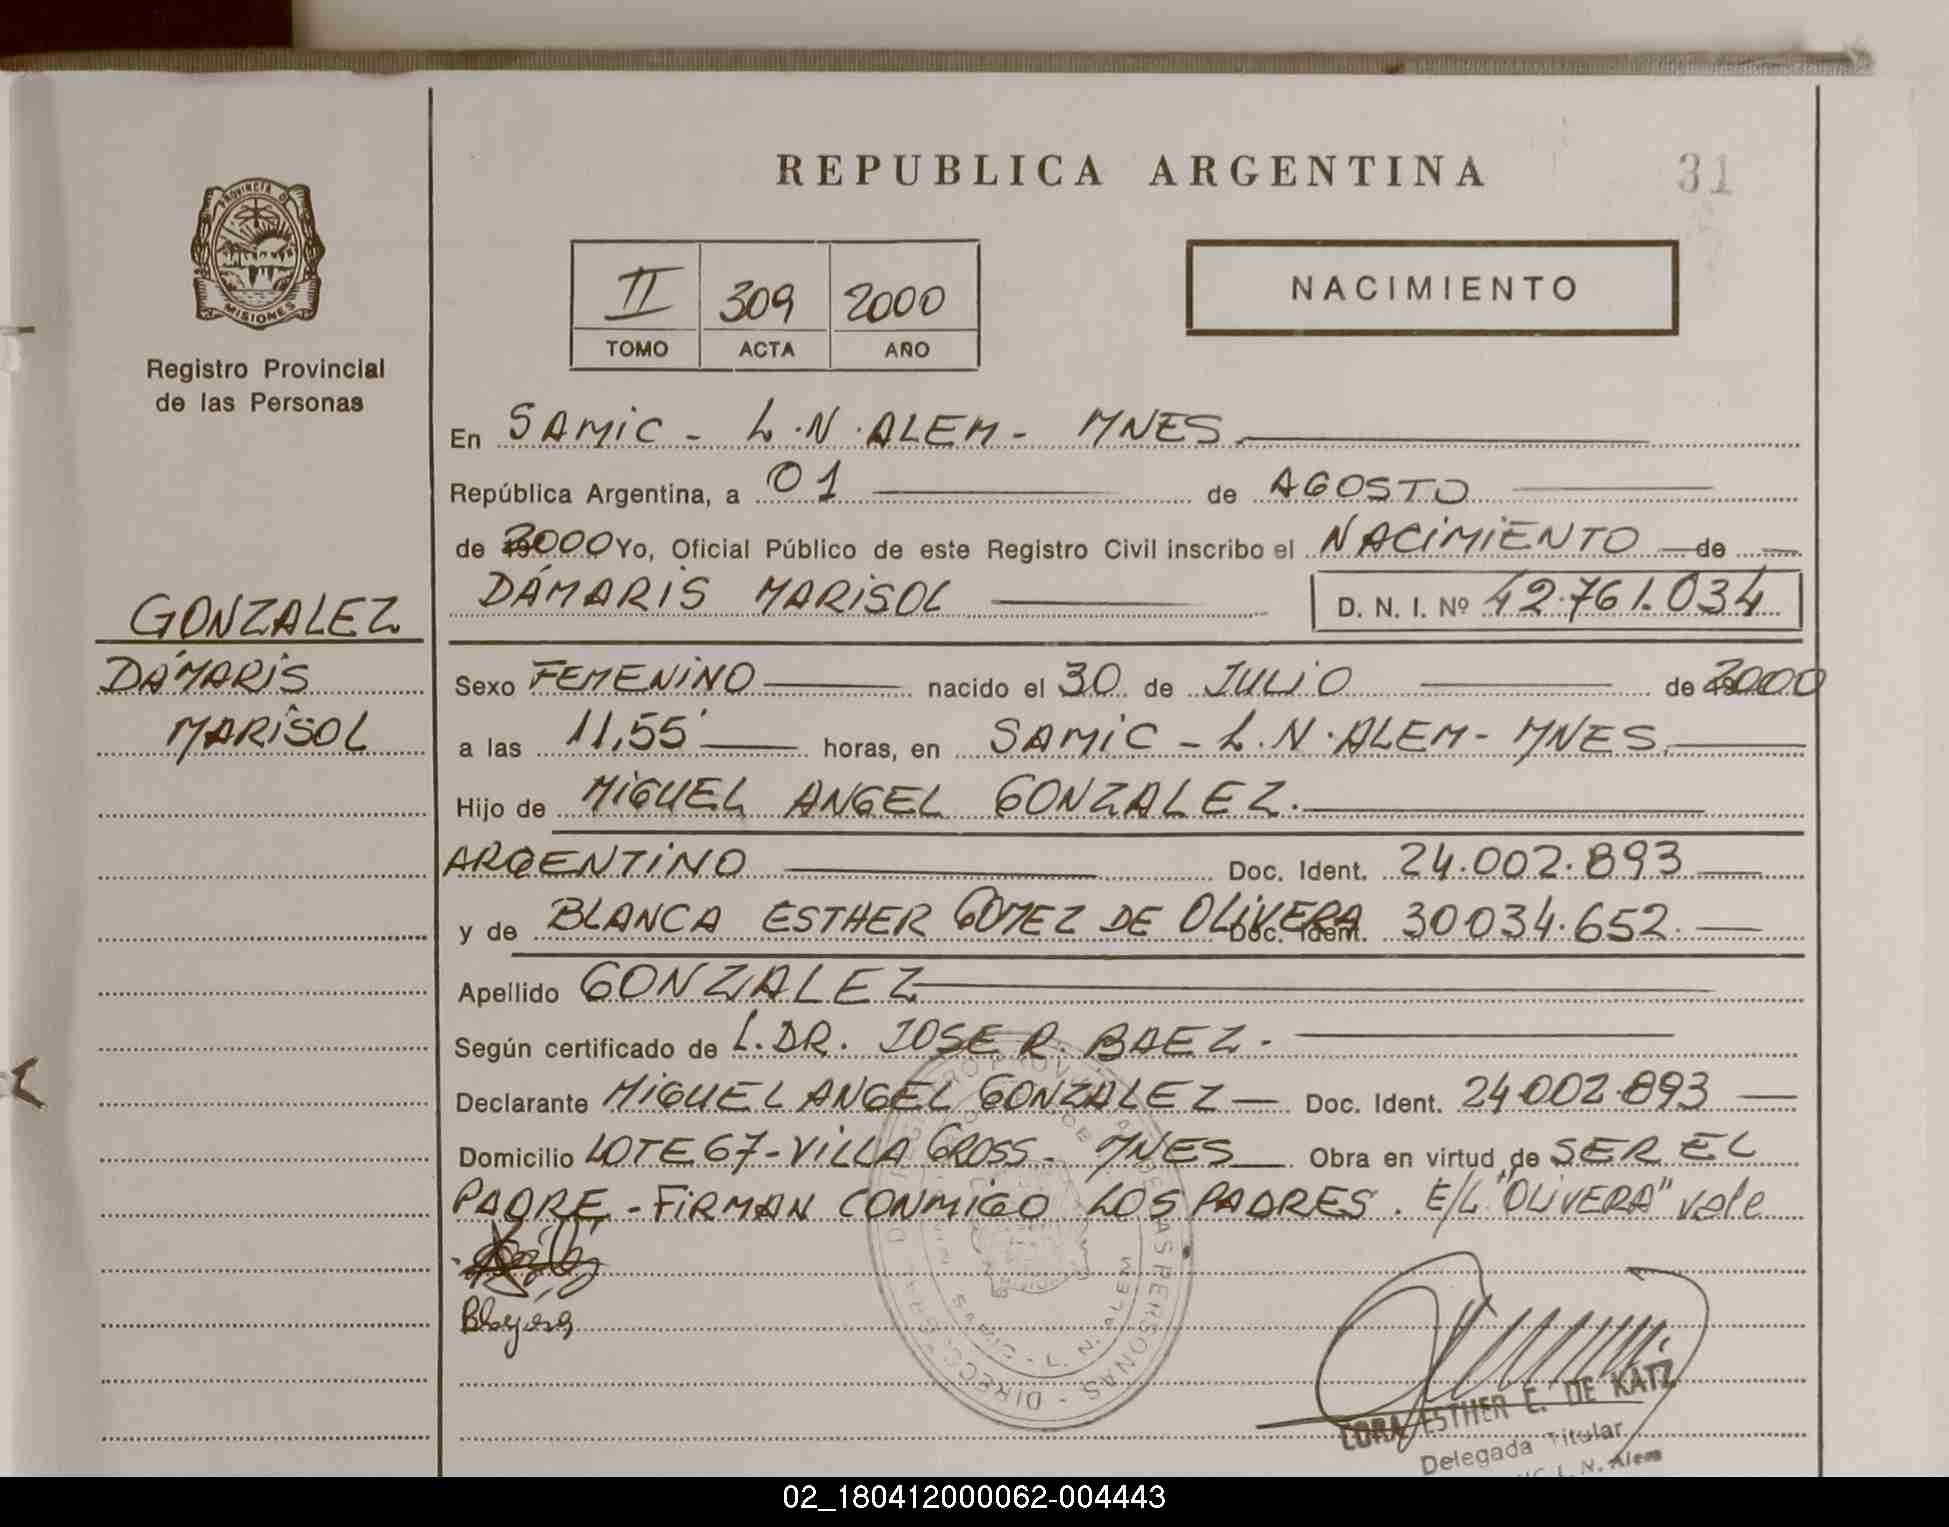 REPUBLICA ARGENTINA
31
PROVINCIA D
MISIONES
Registro Provincial
de las Personas
II 309 2000
TOMO ACTA AÑO
NACIMIENTO
En SAMIC - L.N.ALEM - MNES
República Argentina, a 01 de AGOSTO
de 2000 Yo, Oficial Público de este Registro Civil inscribo el NACIMIENTO de
DÁMARIS MARISOL D. N. I. Nº 42.761.034
GONZALEZ
DÁMARIS
MARISOL
Sexo FEMENINO nacido el 30 de JULIO de 2000
a las 11,55' horas, en SAMIC - L.N.ALEM - MNES.
Hijo de MIGUEL ANGEL GONZALEZ.
ARGENTINO Doc. Ident. 24.002.893
y de BLANCA ESTHER GOMEZ DE OLIVERA Doc. Ident. 30034.652.
Apellido GONZALEZ
Según certificado de L.DR. JOSE R. BAEZ.
Declarante MIGUEL ANGEL GONZALEZ Doc. Ident. 24.002.893
Domicilio LOTE 67 - VILLA GROSS - MNES Obra en virtud de SER EL
PADRE - FIRMAN CONMIGO LOS PADRES. E/L "OLIVERA" vale
ESTHER E. DE KATZ
Delegada Titular
L. N. Alem
02_180412000062-004443